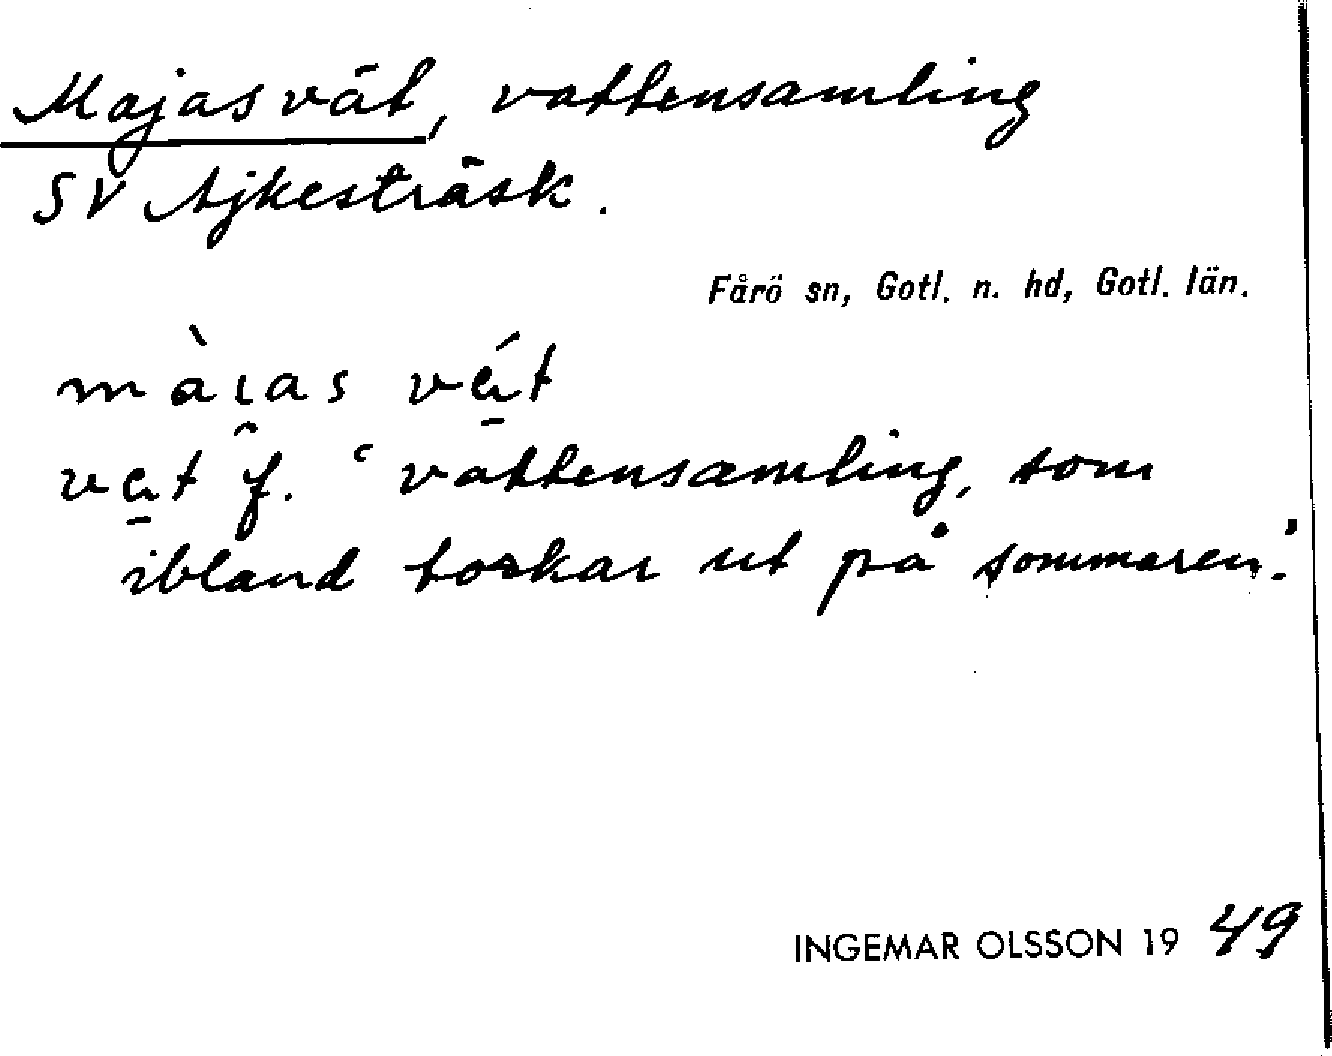 Majas vät, vattensamling
SV Ajkesträsk.
Fårö sn, Gotl. n. hd, Gotl. län.
màɩ̯as vét
vet f. 'vattensamling, som
ibland torkar ut på sommaren'.
INGEMAR OLSSON 1949